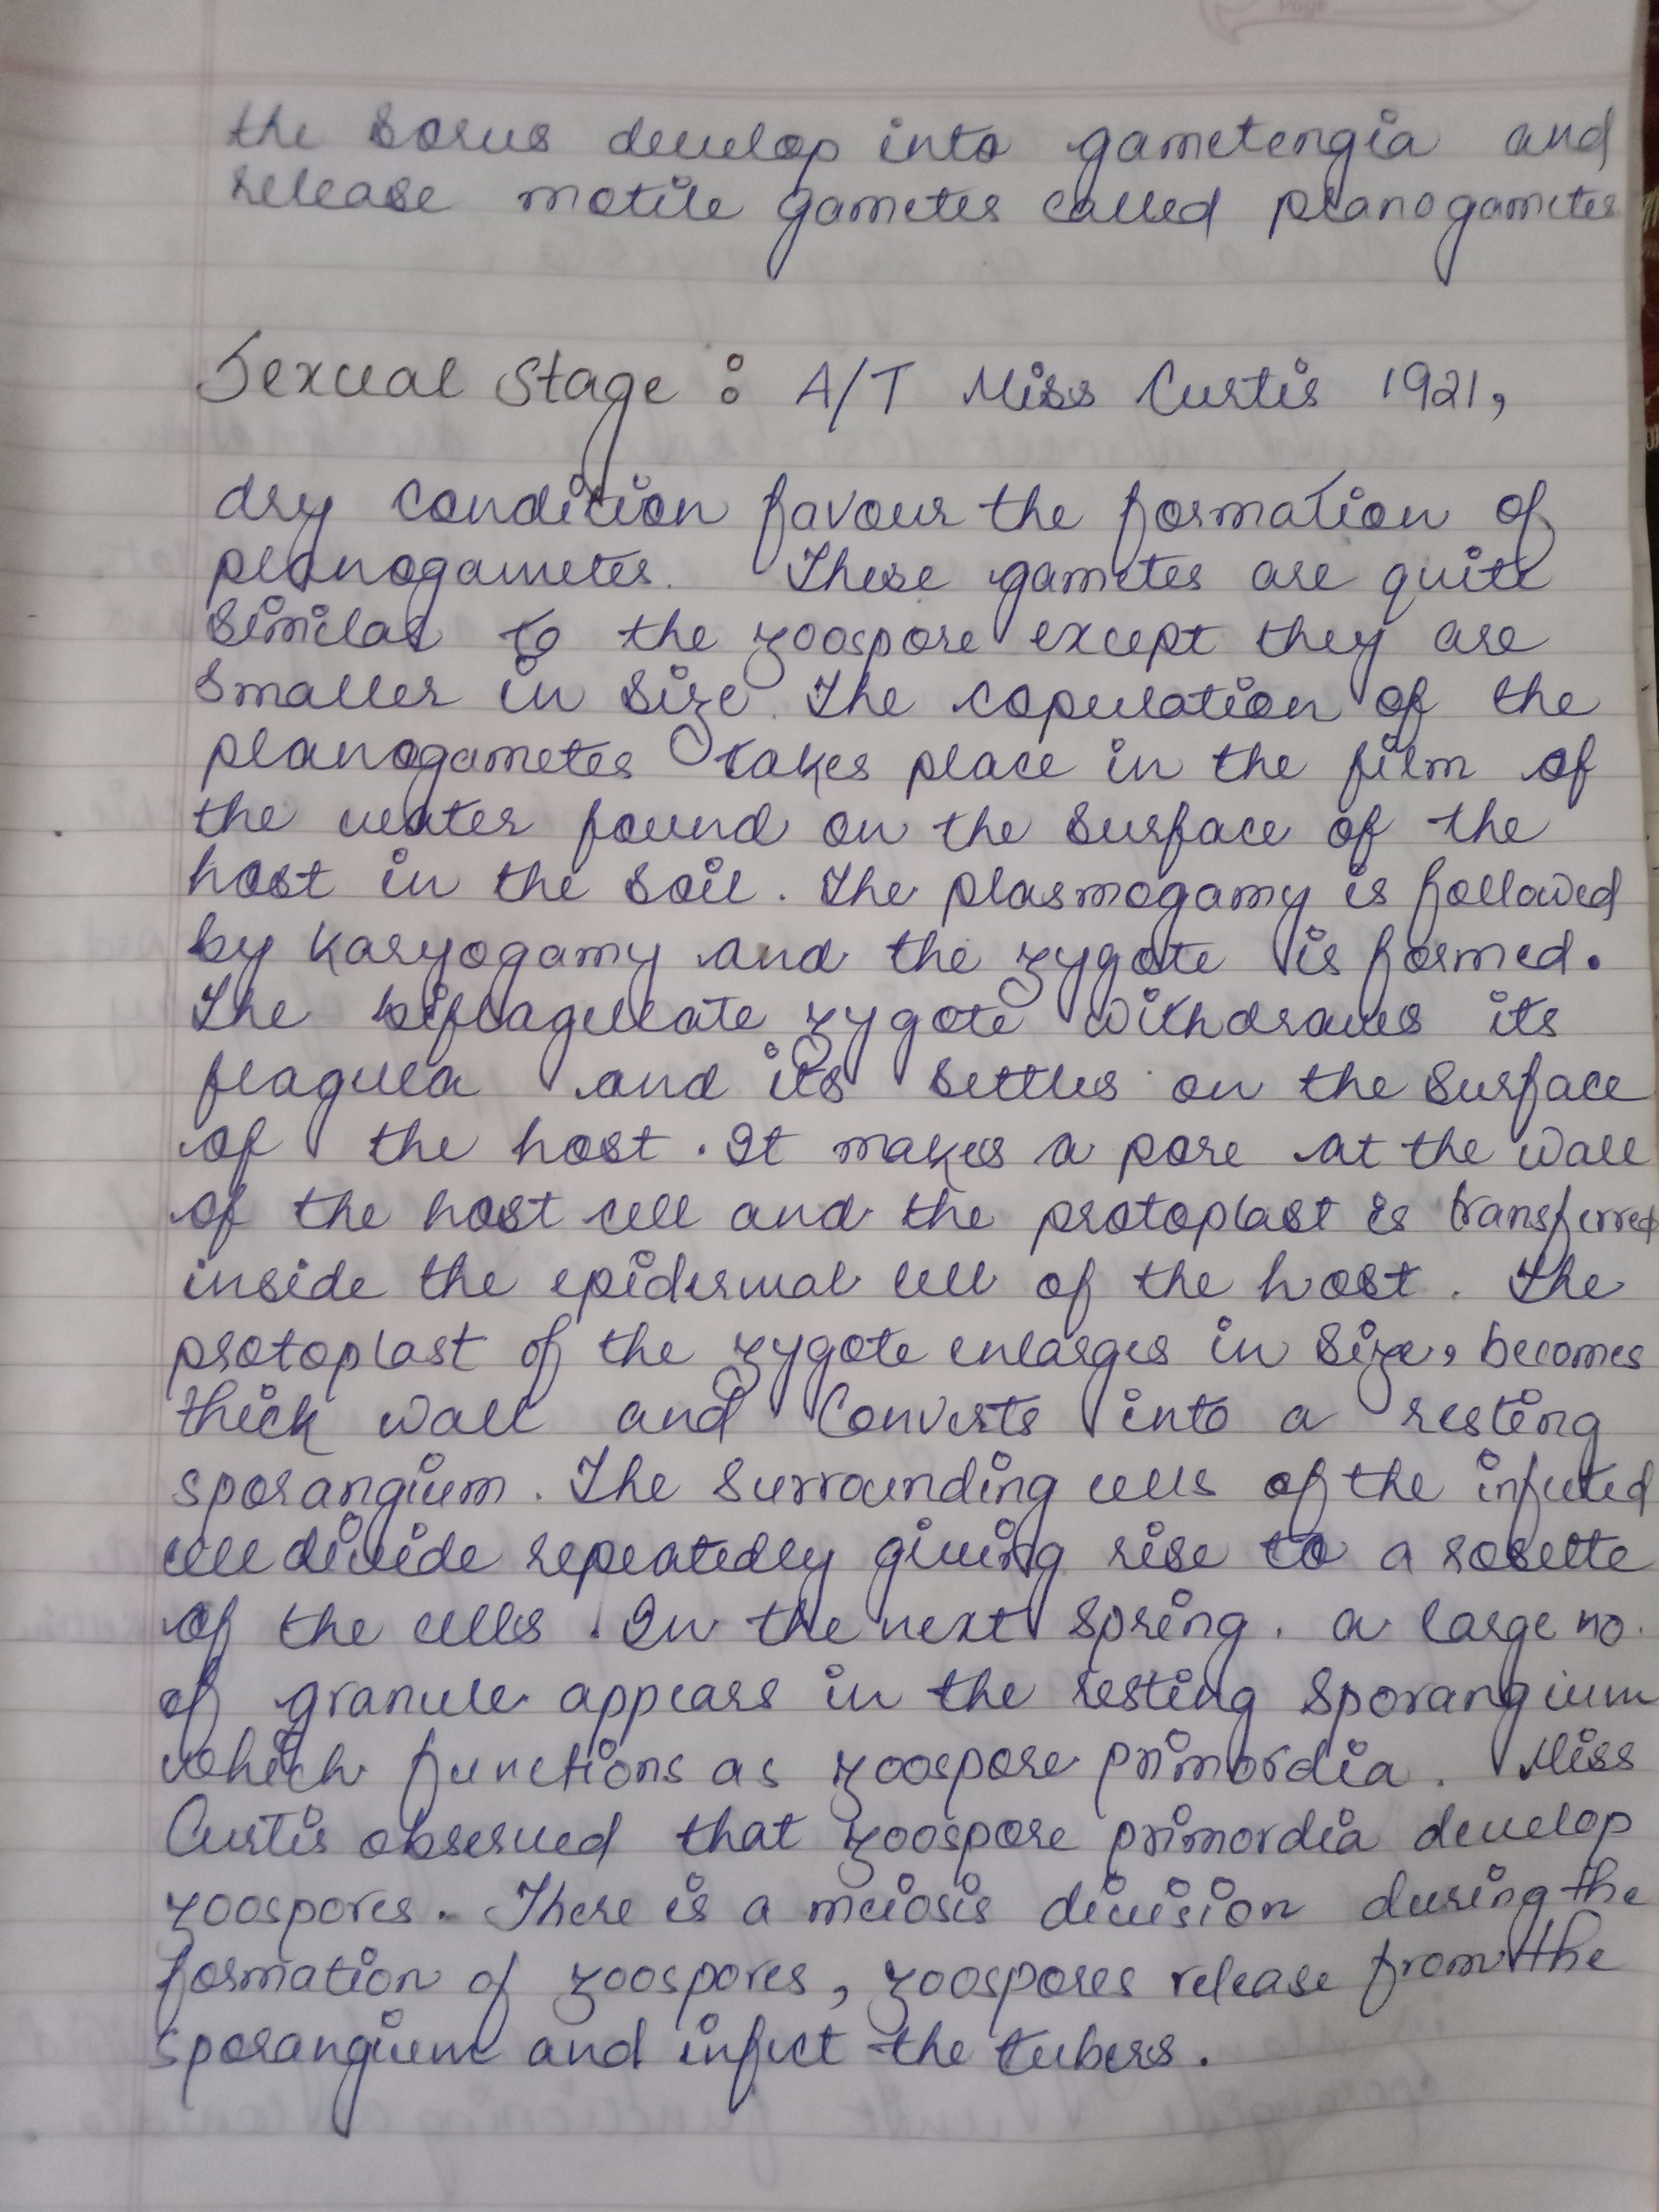 Page
the sorus develop into gametengia and
release motile gametes called planogametes
Sexual Stage : A/T Miss Curtis 1921,
dry condition favour the formation of
planogametes. These gametes are quite
similar to the zoospore except they are
smaller in size. The copulation of the
planogametes takes place in the film of
the water found on the surface of the
host in the soil. The plasmogamy is followed
by karyogamy and the zygote is formed.
The biflagellate zygote withdraws its
flagella and its settles on the surface
of the host. It makes a pore at the wall
of the host cell and the protoplast is transferred
inside the epidermal cell of the host. The
protoplast of the zygote enlarges in size, becomes
thick wall and converts into a resting
sporangium. The surrounding cells of the infected
cell divide repeatedly giving rise to a rosette
of the cells. In the next spring. a large no.
of granule appears in the resting sporangium
which functions as zoospore primordia. Miss
Curtis observed that zoospore primordia develop
zoospores. There is a meiosis division during the
formation of zoospores, zoospores release from the
sporangium and infect the tubers.